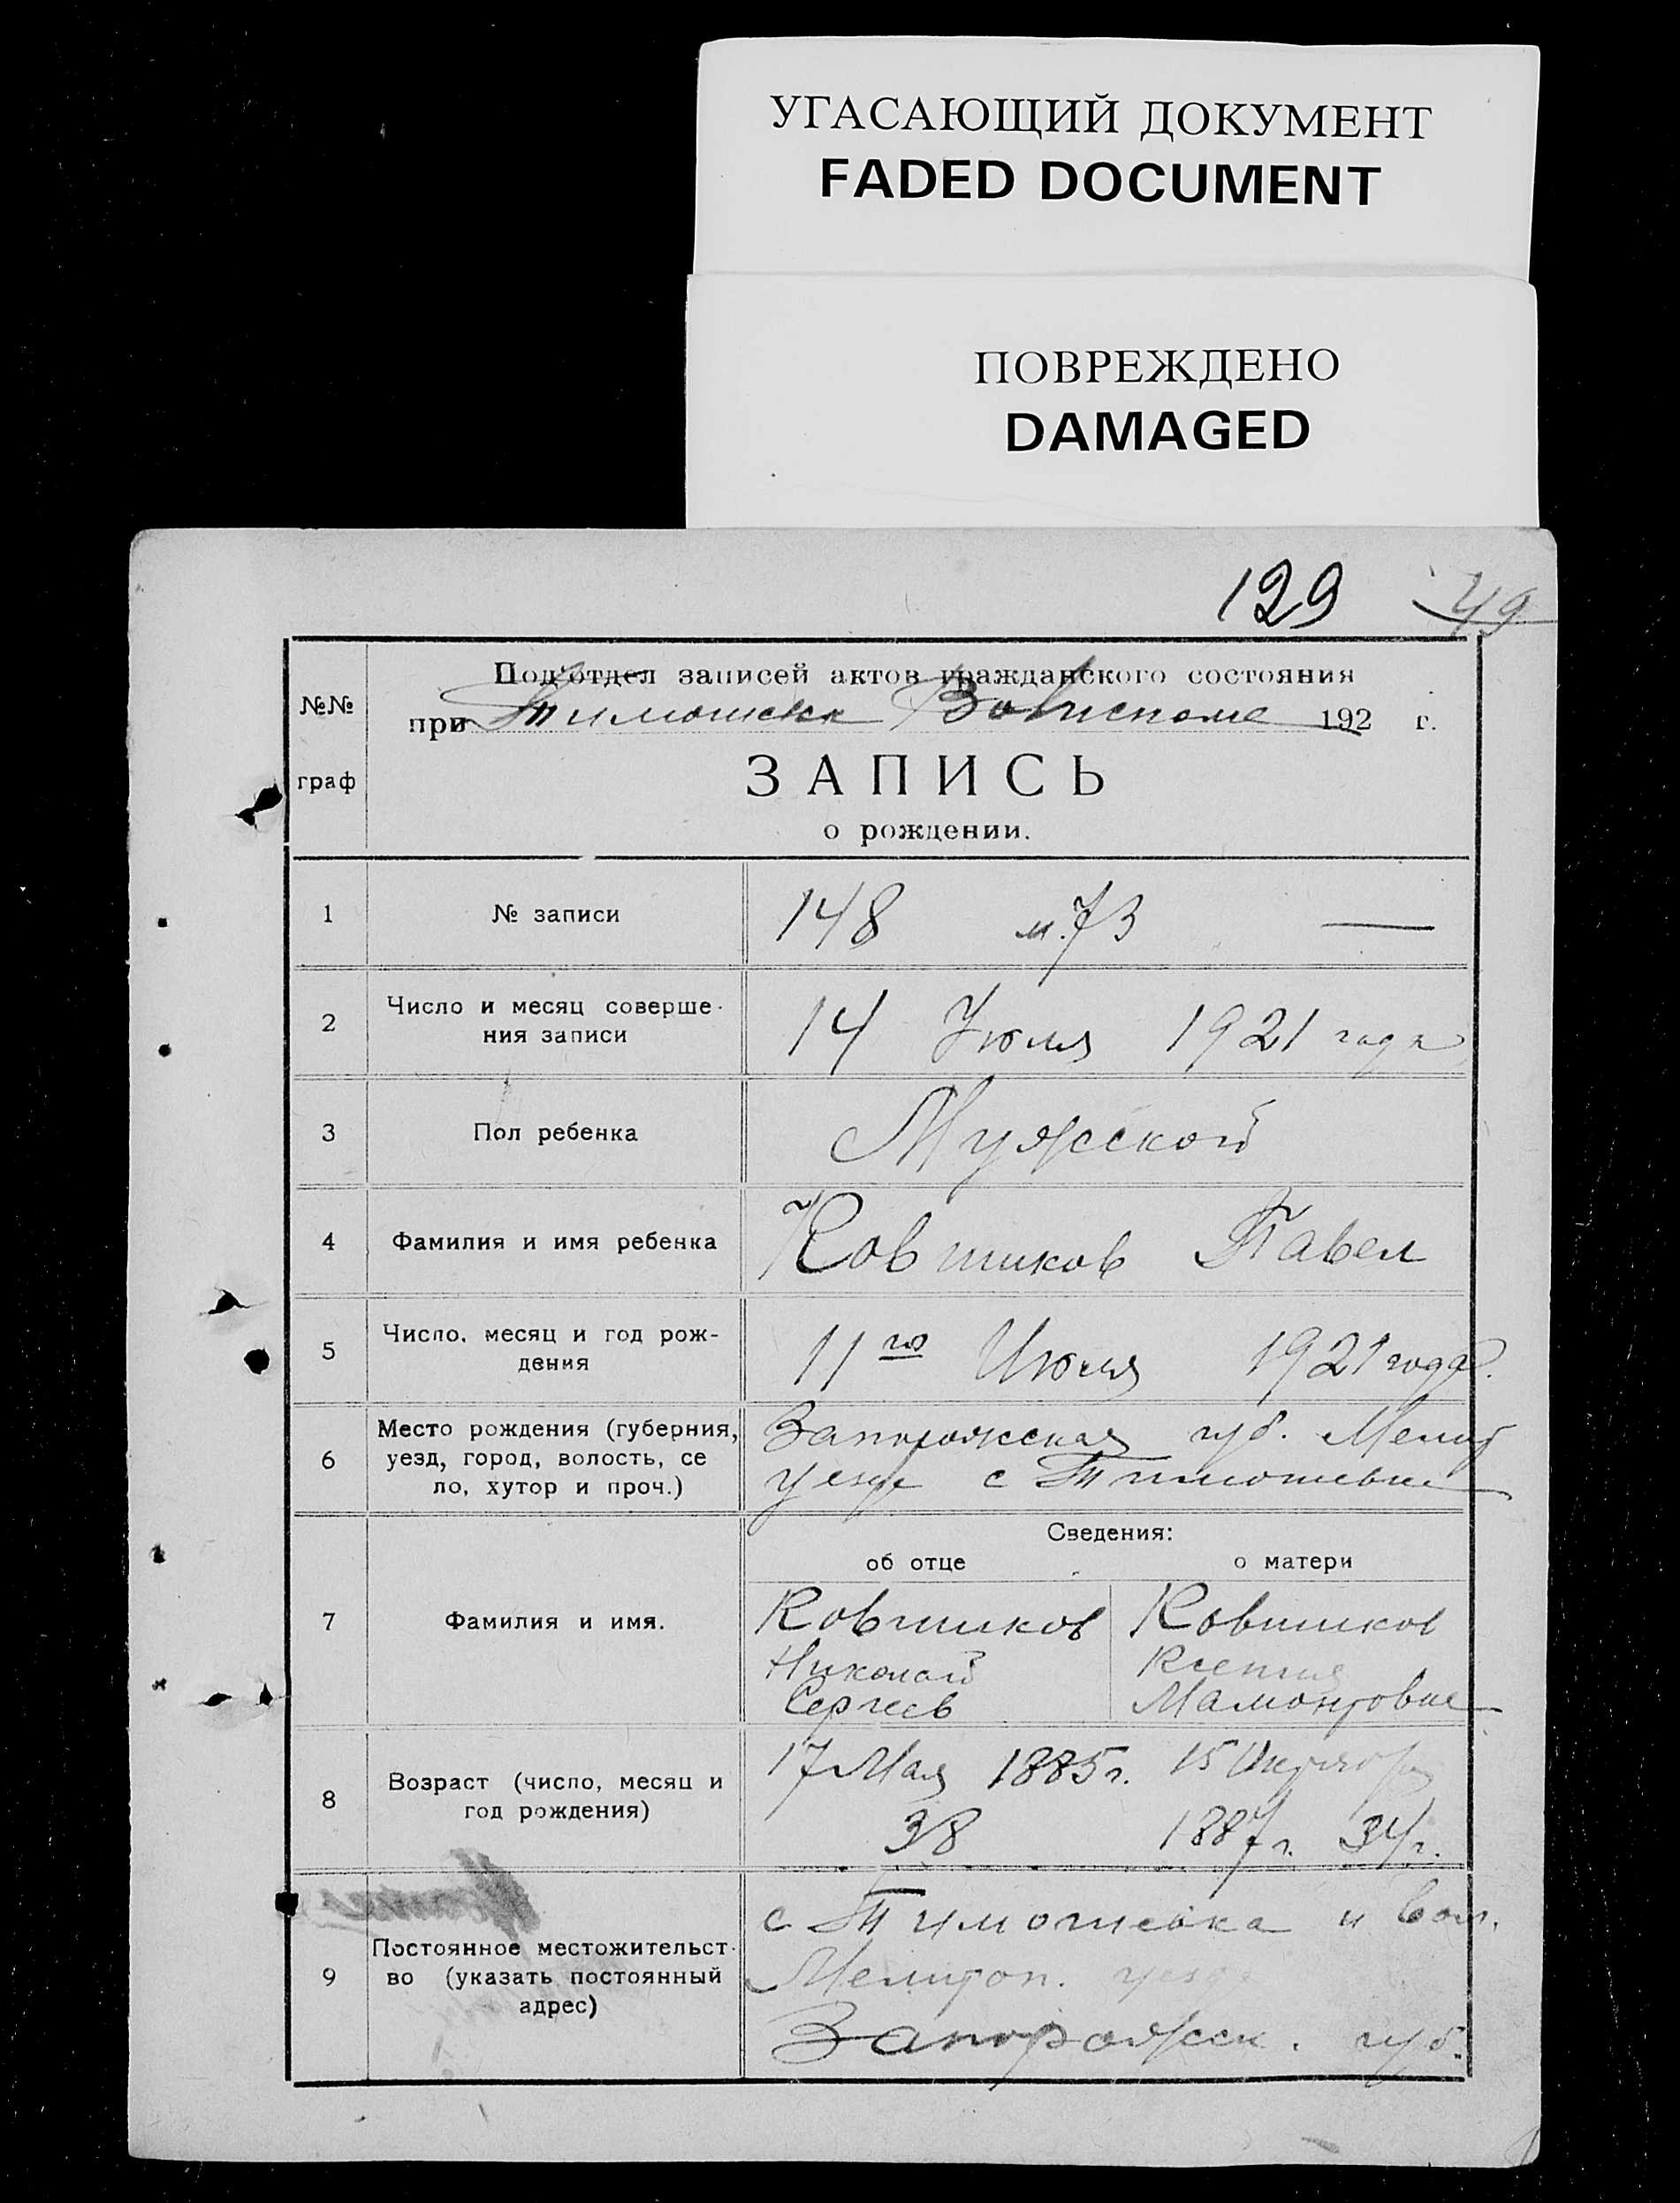 УГАСАЮЩИЙ ДОКУМЕНТ
FADED DOCUMENT
ПОВРЕЖДЕНО
DAMAGED
129 49
Подотдел записей актов гражданского состояния
№№
при 192 г.
граф
ЗАПИСЬ
о рождении.
1 № записи 148 м.73 —
2 Число и месяц соверше-
ния записи 14 Июля 1921 года
3 Пол ребенка Мужской
4 Фамилия и имя ребенка Ковшиков Павел
5 Число, месяц и год рож-
дения 11го Июля 1921 года.
6 Место рождения (губерния,
уезд, город, волость, се
ло, хутор и проч.)
Запорожская губ. Мелит
уезда с Тимошевке
Сведения:
об отце о матери
7 Фамилия и имя.
Ковшиков Ковшиков
Николай Ксения
Сергеев Мамонтовна
8 Возраст (число, месяц и
год рождения)
17 Мая 1885 г. 15 Октября
38 1887 г. 34 г.
9 Постоянное местожительст-
во (указать постоянный
адрес)
с Тимошевка и вол.
Мелитоп. уез
Запорожск. губ.